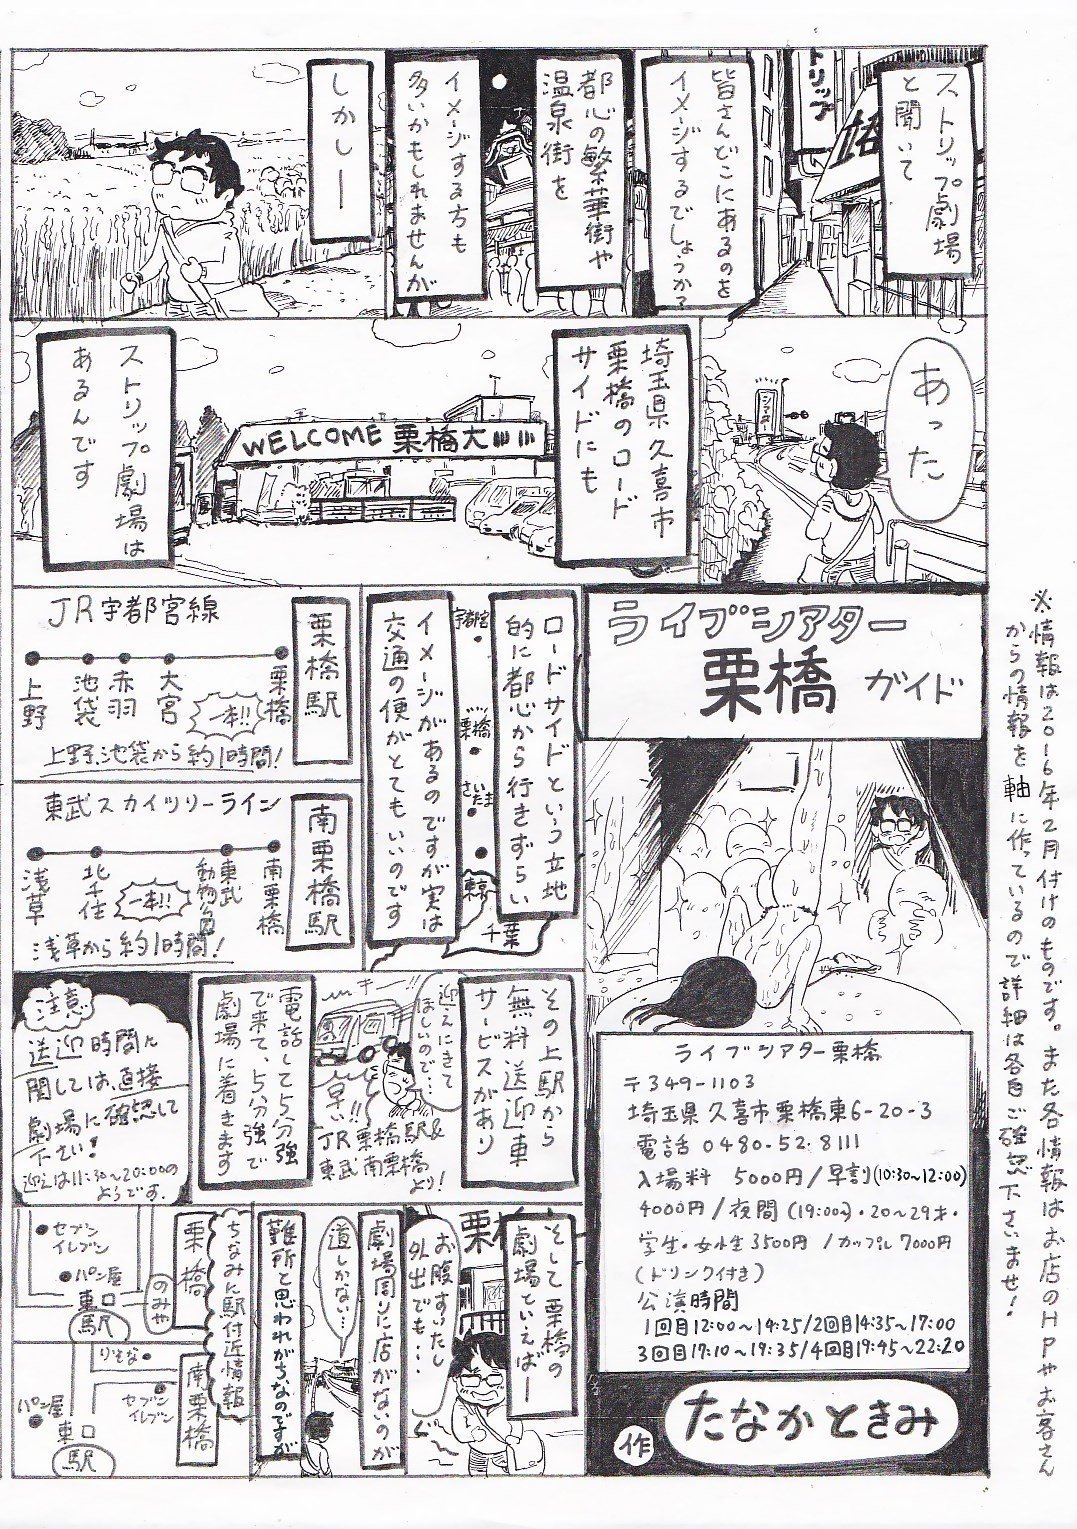 ストリップ劇場
と聞いて
トリップ
皆さんどこにあるのを
イメージするでしょうか?
都心の繁華街や
温泉街を
イメージする方も
多いかもしれませんが
しかし―
あった
埼玉県久喜市
栗橋のロード
サイドにも
WELCOME 栗橋大
ストリップ劇場は
あるんです
ライブシアター
栗橋 ガイド
ロードサイドという立地
的に都心から行きずらい
イメージがあるのですが実は
交通の便がとてもいいのです
宇都宮
栗橋
さいたま
東京
千葉
栗橋駅
JR宇都宮線
上野
池袋
赤羽
大宮
栗橋
一本!!
上野、池袋から約1時間!
南栗橋駅
東武スカイツリーライン
浅草
北千住
東武
動物公園
南栗橋
一本!!
浅草から約1時間!
その上駅から
無料送迎車
サービスがあり
迎えにきて
ほしいので…
早い!!
JR栗橋駅&
東武南栗橋
より!
電話して5分強
で来て、5分強で
劇場に着きます
注意
送迎時間に
関しては、直接
劇場に確認して
下さい!
迎えは11:30~20:00の
ようです。
そして栗橋の
劇場といえば―
お腹すいたし
外出でも…
劇場周りに店がないのが
道しかない…
難所と思われがちなのですが
ちなみに駅付近情報
栗橋
セブン
イレブン
パン屋
東口
駅
のみや
南栗橋
りそな
セブン
イレブン
パン屋
東口
駅
ライブシアター栗橋
〒349-1103
埼玉県久喜市栗橋東6-20-3
電話 0480-52-8111
入場料 5000円/早割(10:30~12:00)
4000円/夜間(19:00~)・20~29才・
学生・女性3500円/カップル7000円
(ドリンク付き)
公演時間
1回目12:00~14:25/2回目14:35~17:00
3回目17:10~19:35/4回目19:45~22:20
作
たなかときみ
※情報は2016年2月付けのものです。また各情報はお店のHPやお客さん
からの情報を軸に作っているので詳細は各自ご確認下さいませ!